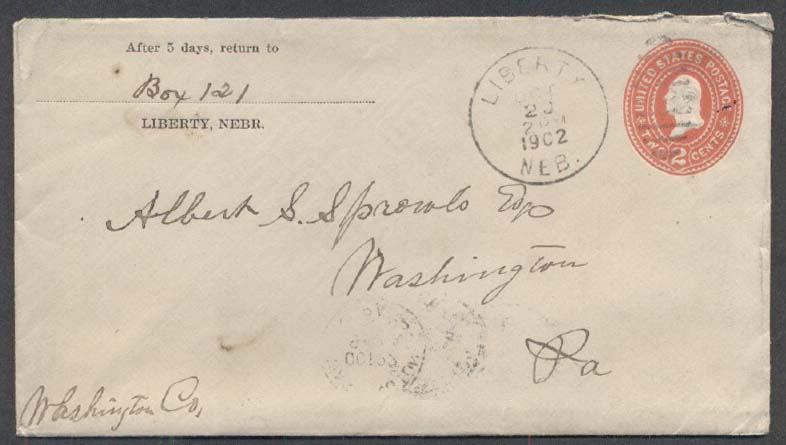 After 5 days, return to
Box 121
LIBERTY, NEBR.
LIBERTY
2 PM
1902
NEB.
UNITED STATES POSTAGE
TWO 2 CENTS
Albert S. Sprowls Esq
Washington
Pa
Washington Co,